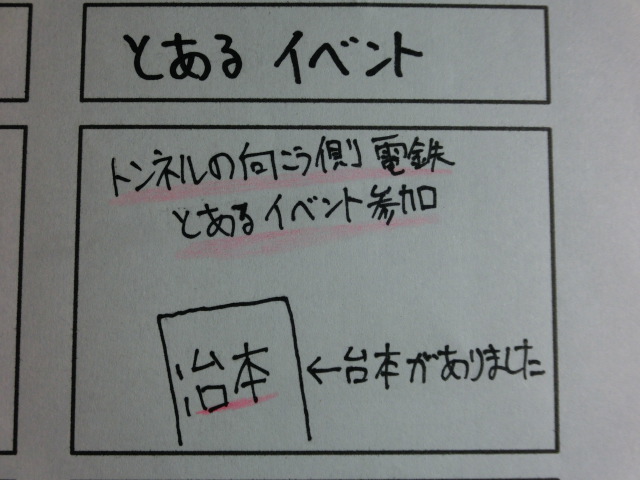 とある イベント
トンネルの向こう側電鉄
とあるイベント参加
治本
←台本がありました